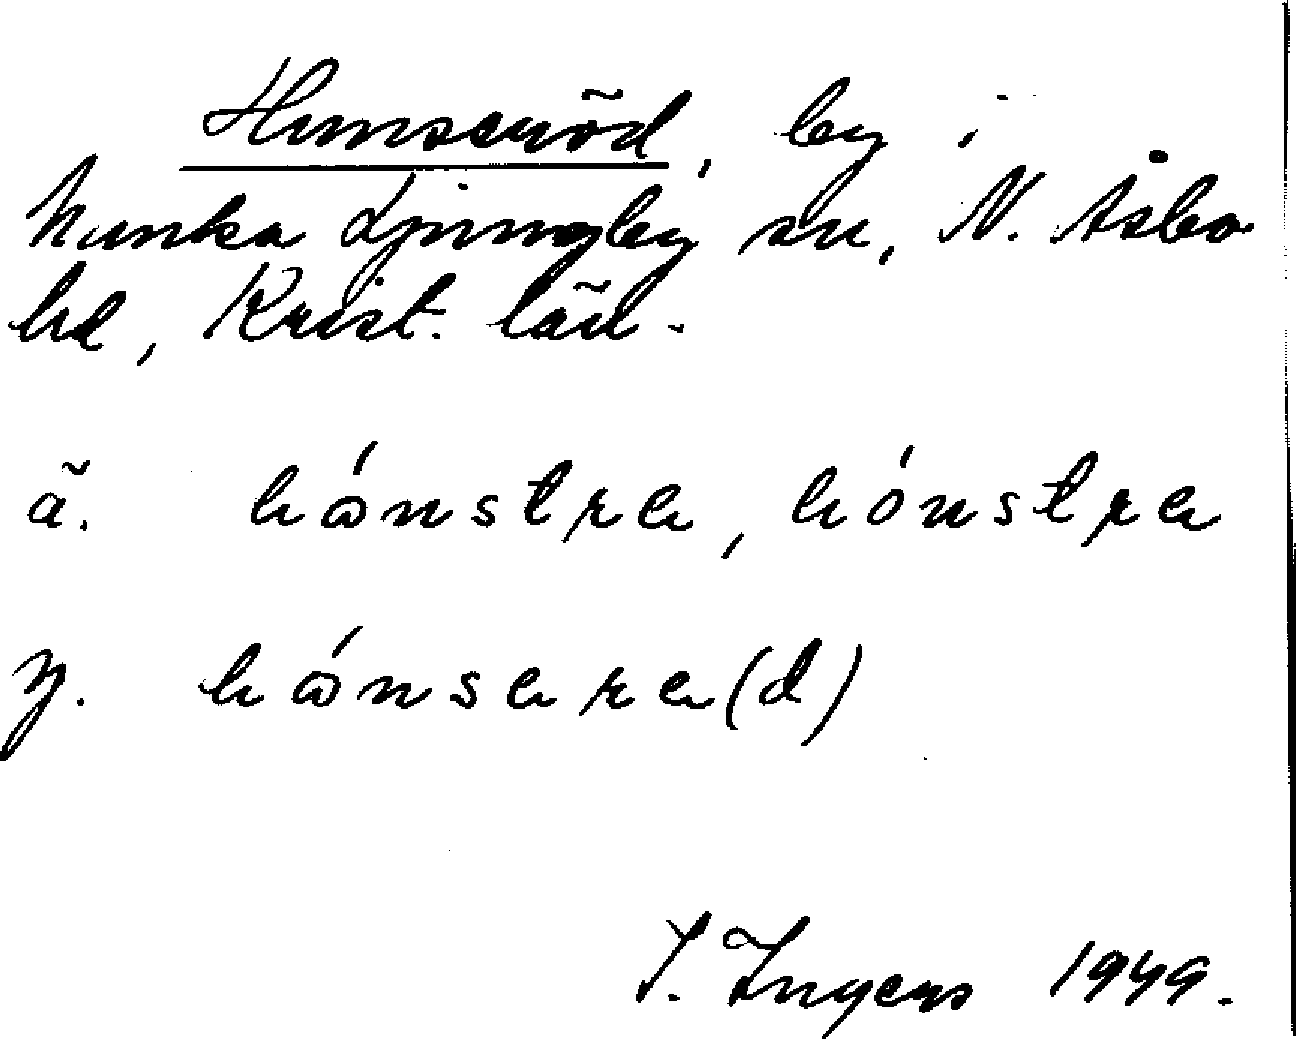 Hunseröd, by i
Munka Ljungby sn, N. Åsbo
hd, Krist. län.
ä. hónstre, hónstre
y. hónsere(d)
I. Ingers 1949.